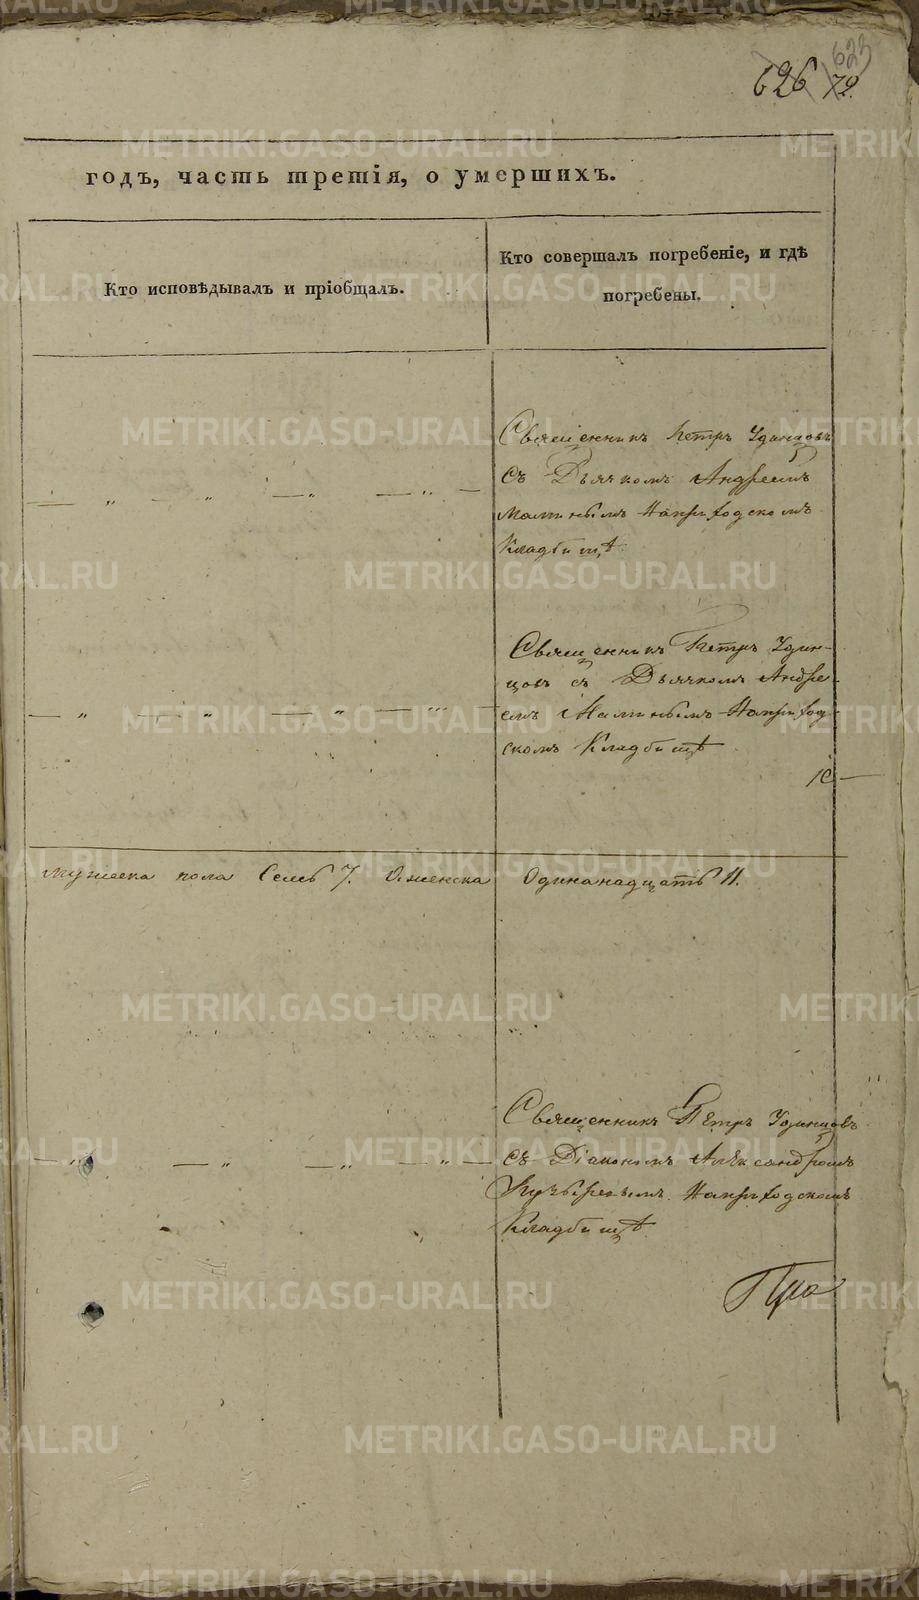 623
626 72.
годъ, часть третія, о умершихъ.
Кто исповѣдывалъ и пріобщалъ.
Кто совершалъ погребеніе, и гдѣ
погребены.
Священникъ Петръ Удинцовъ
съ Дьячкомъ Андреемъ
Маминымъ На приходскомъ
Кладбищѣ
Священникъ Петръ Удин-
цовъ съ Дьячкомъ Андре-
емъ Маминымъ На приход-
скомъ Кладбищѣ
мужеска пола Семь 7. Оженска Одинанадцать 11.
Священникъ Петръ Удинцовъ
съ Діакономъ Александромъ
На приходскомъ
Кладбищѣ
METRIKI.GASO-URAL.RU